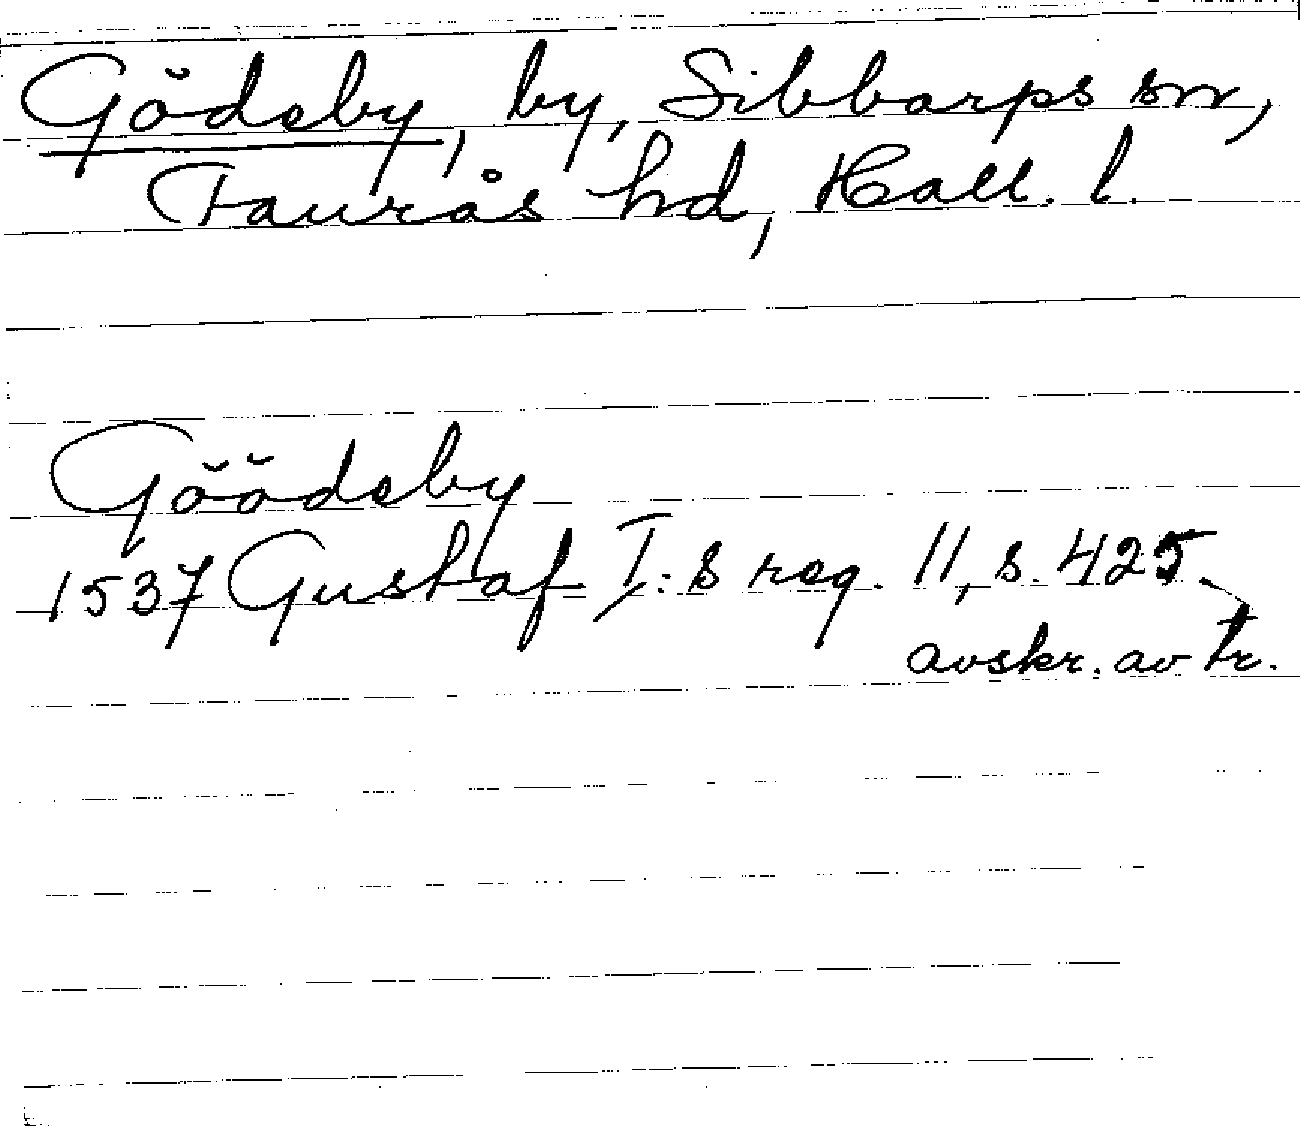 Gödeby, by, Sibbarps sn,
Faurås hd, Hall. l.
Göödeby
1537 Gustaf I:s reg. 11, s. 425.
avskr. av tr.